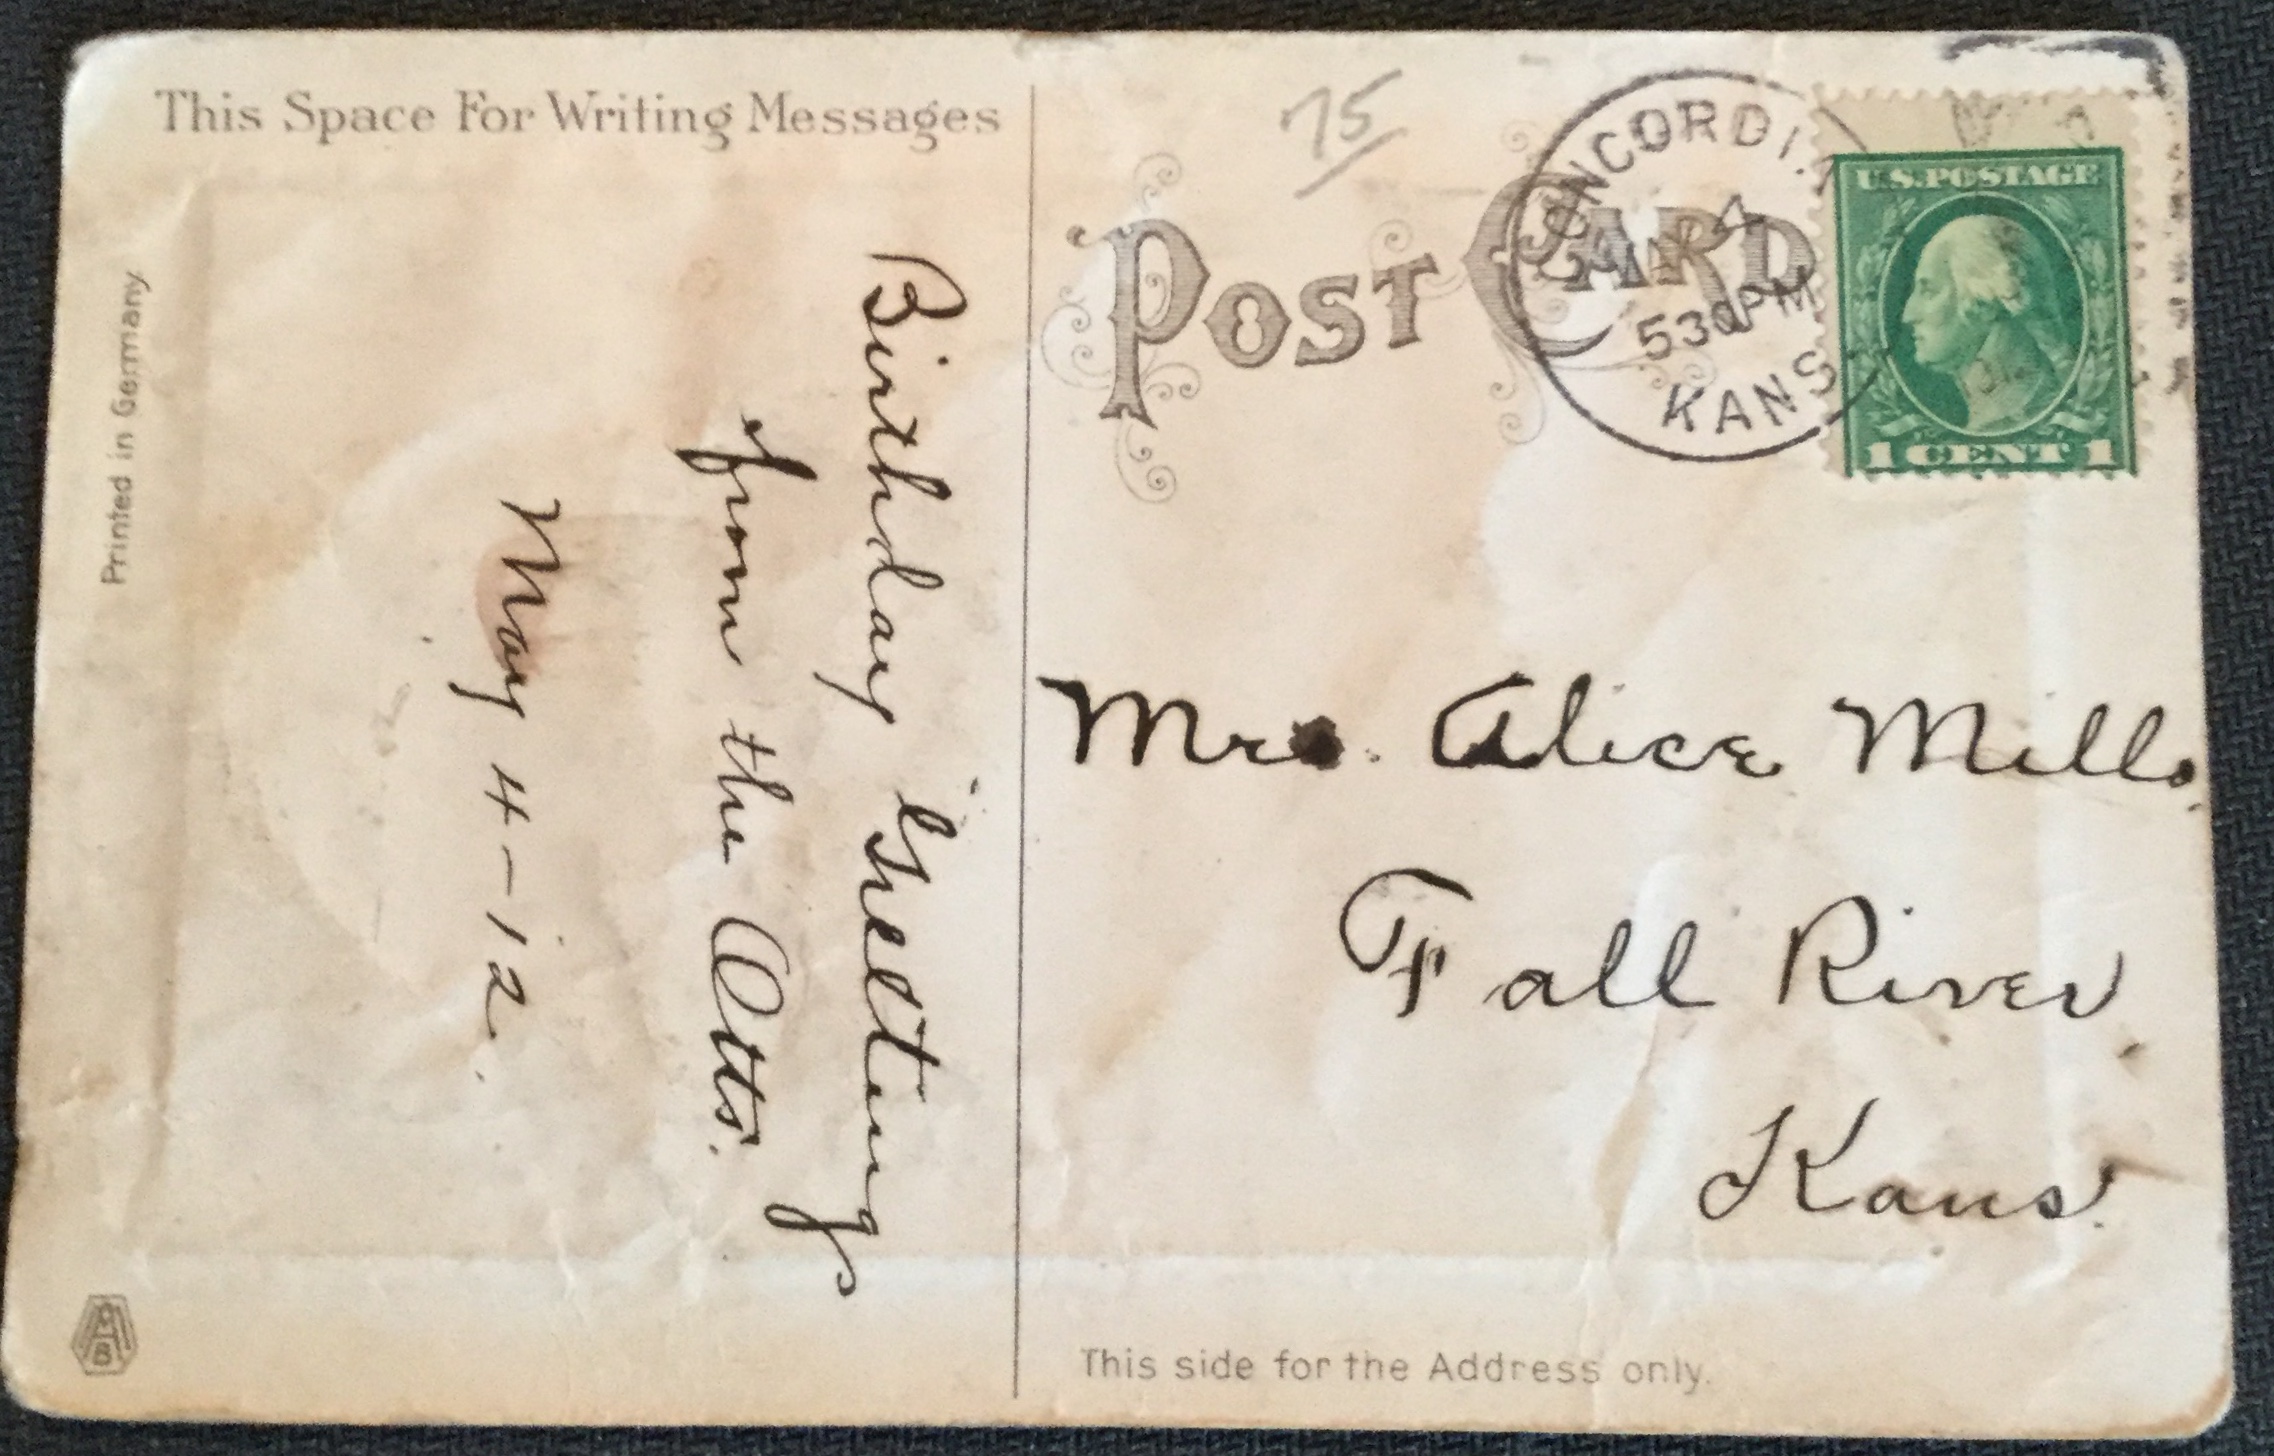 This Space For Writing Messages
Printed in Germany
Birthday Greetings
from the Otts.
May 4-12.
75
POST CARD
CONCORDIA
4
530PM
KANS.
U.S.POSTAGE
1 CENT 1
Mrs. Alice Mills,
Fall River,
Kans.
This side for the Address only.